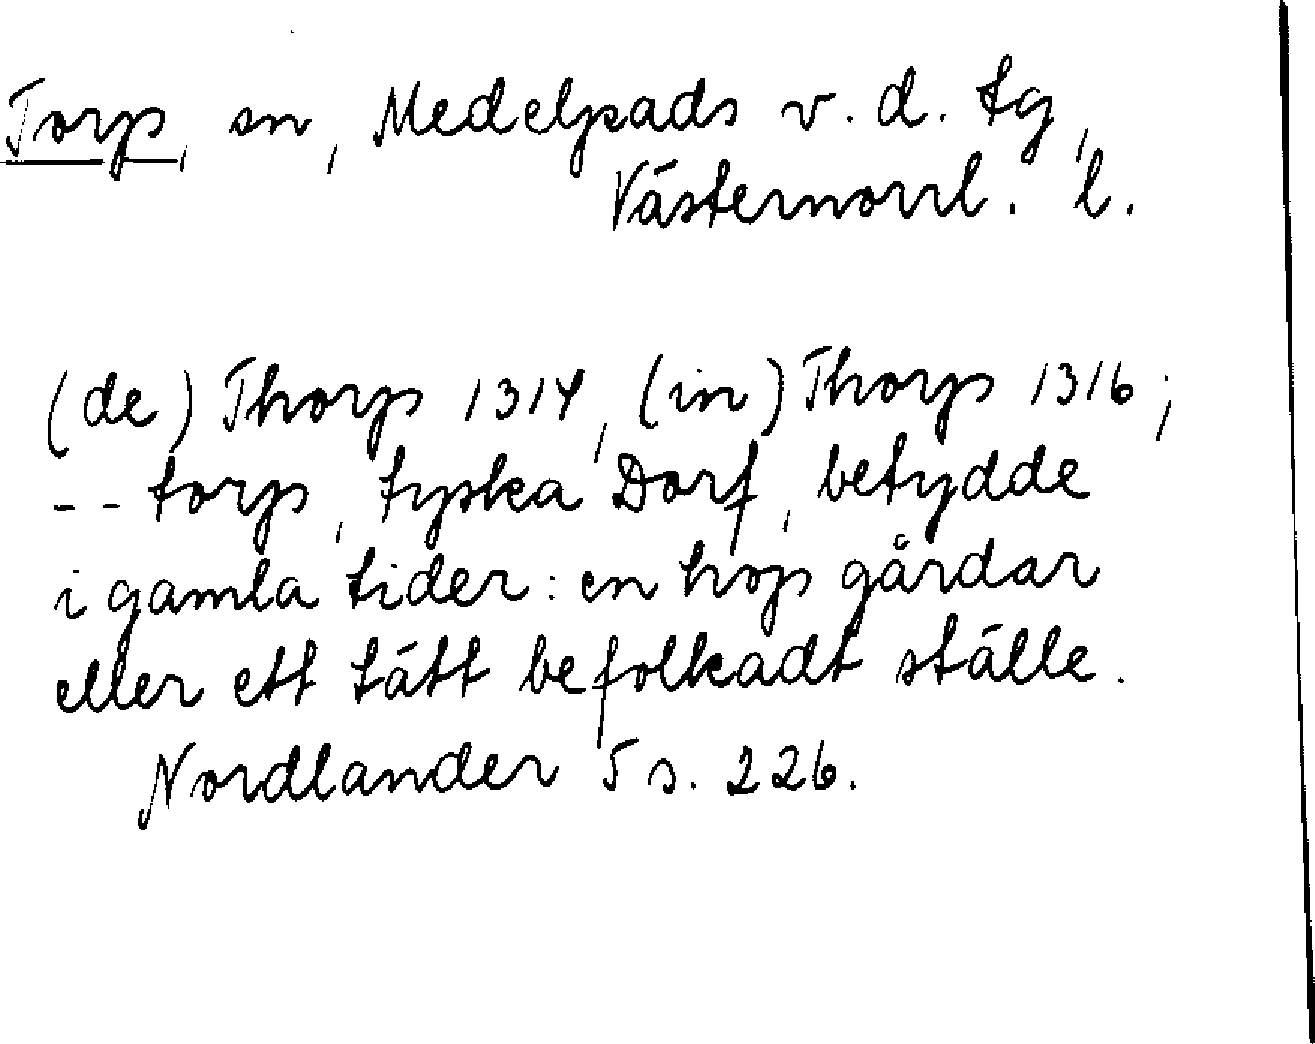 Torp, sn, Medelpads v. d. tg,
Västernorrl. l.
(de) Thorp 1314, (in) Thorp 1316;
-- torp, tyska Dorf, betydde
i gamla tider: en hop gårdar
eller ett tätt befolkadt ställe.
Nordlander 5 s. 226.